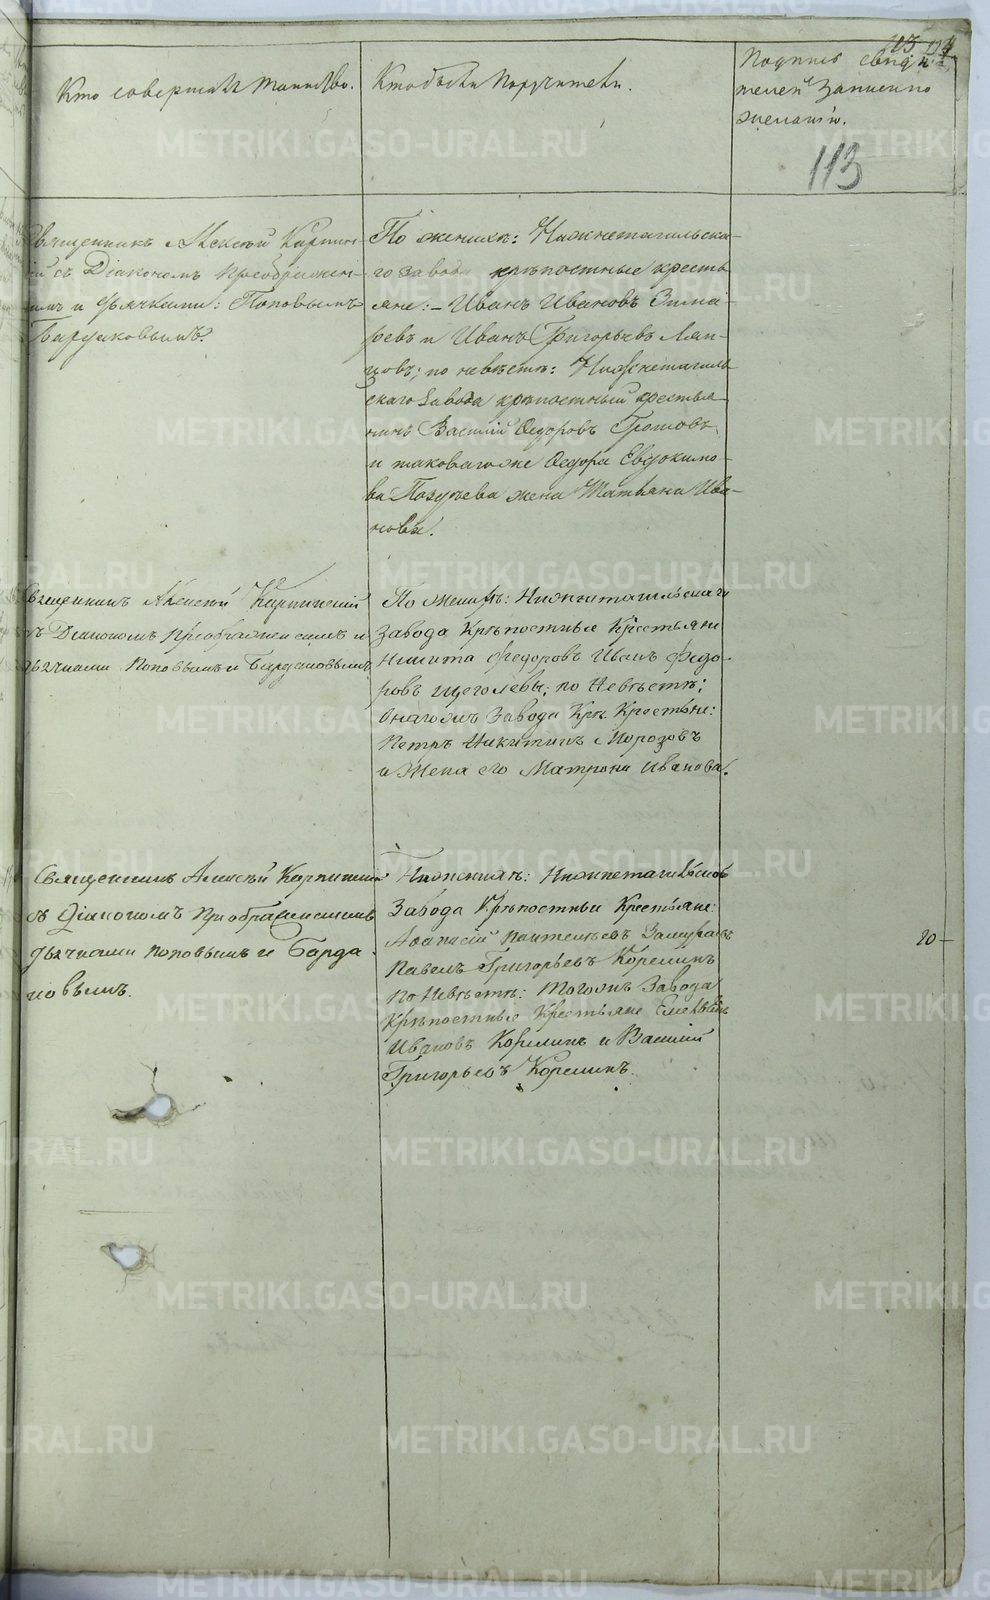 113
Кто совершалъ таинство.
Кто были поручители.
Подпись свидѣ-
телей записи по
желанію.
113
Священникъ Алексѣй Карпин-
скій съ Діакономъ Преображен-
скимъ и дьячками: Поповымъ
Бардаковымъ.
По женихѣ: Нижнетагильска-
го завода крѣпостные кресть
яне: Иванъ Ивановъ
и Иванъ Григорьевъ Ляп-
цовъ; по невѣстѣ: Нижнетагиль
скаго Завода крѣпостный крестья-
нинъ Василій Ѳедоровъ
и таковагоже Ѳедора Евдокимо-
ва жена Татьяна Ива-
нова.
Священникъ Алексѣй Карпинскій
съ Діакономъ Преображенскимъ и
дьячками Поповымъ и Бардаковымъ
По женихѣ: Нижнетагильскаго
завода Крѣпостные Крестьяне
Никита Федоровъ Иванъ Федо-
ровъ Щеголевы; по Невѣстѣ:
Онагожъ Завода Крѣ. Крестьяне:
Петръ Никитинъ Морозовъ
и Жена его Матрона Иванова.
Священникъ Алексѣй Карпинскій
съ Діакономъ Преображенскимъ
дьячками Поповымъ и Барда
ковымъ.
По женихѣ: Нижнетагильскаго
Завода Крѣпостные Крестьяне:
Аѳанасій Пантелѣевъ
Павелъ Григорьевъ Корелинъ
по Невѣстѣ: Тогожъ Завода
Крѣпостные Крестьяне Емельянъ
Ивановъ Корелинъ и Василій
Григорьевъ Корелинъ.
20-
METRIKI.GASO-URAL.RU